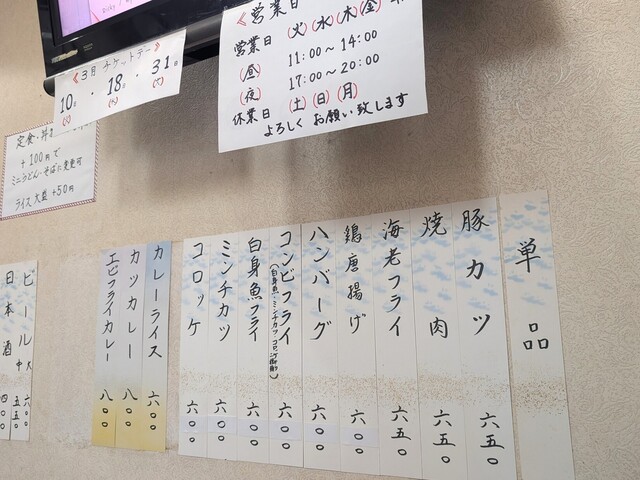 《営業日》
営業日 (火)(水)(木)(金)
(昼) 11:00〜14:00
(夜) 17:00〜20:00
休業日 (土)(日)(月)
よろしくお願い致します
《3月チケットデー》
10日・18日・31日
(火) (水) (火)
定食・丼
+100円で
ミニうどん・そばに変更可
ライス大盛+50円
単品
豚カツ 六五〇
焼肉 六五〇
海老フライ 六五〇
鶏唐揚げ 六〇〇
ハンバーグ 六〇〇
コンビフライ 六〇〇
白身魚フライ 六〇〇
ミンチカツ 六〇〇
コロッケ 六〇〇
カレーライス 六〇〇
カツカレー 八〇〇
エビフライカレー 八〇〇
ビール 大 六〇〇
中 五五〇
日本酒 四〇〇